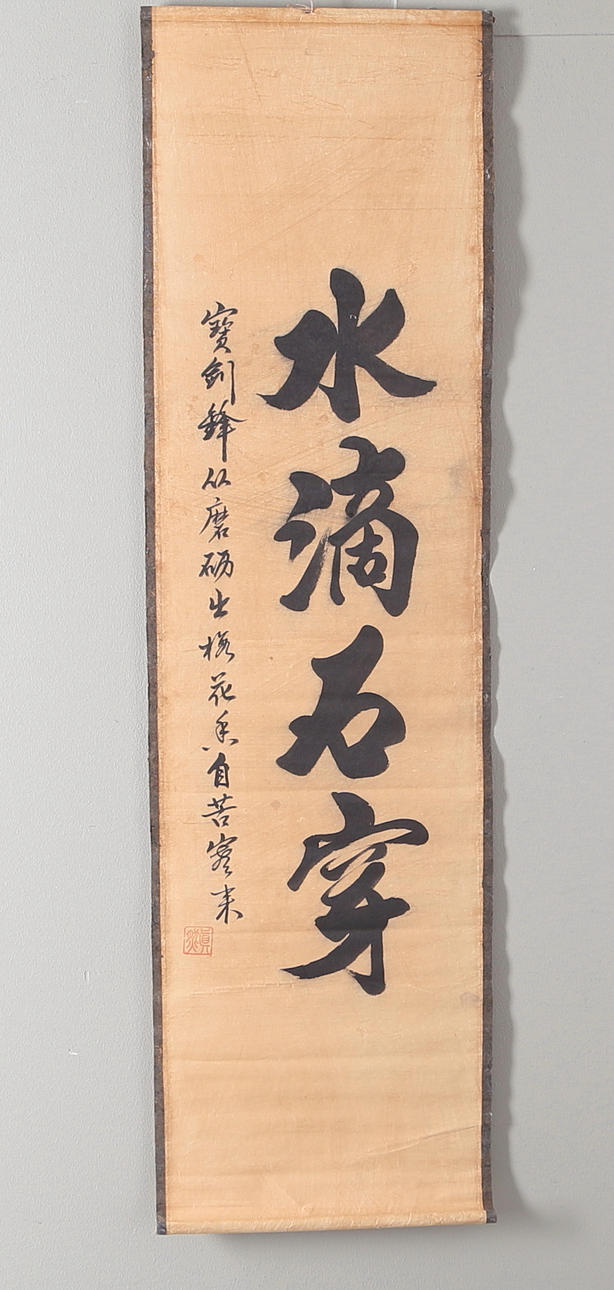 水滴石穿
寶劍鋒从磨砺出梅花香自苦寒来